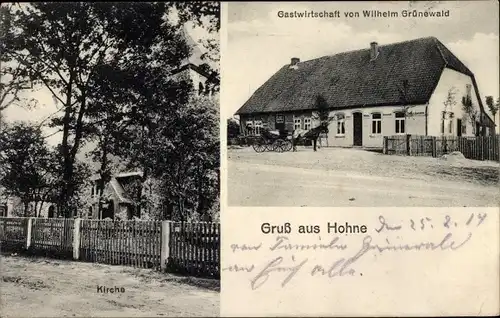 Gastwirtschaft von Wilhelm Grünewald
Kirche
Gruß aus Hohne
den 25. 2. 14
von Familie Grünewald
an Euch alle.